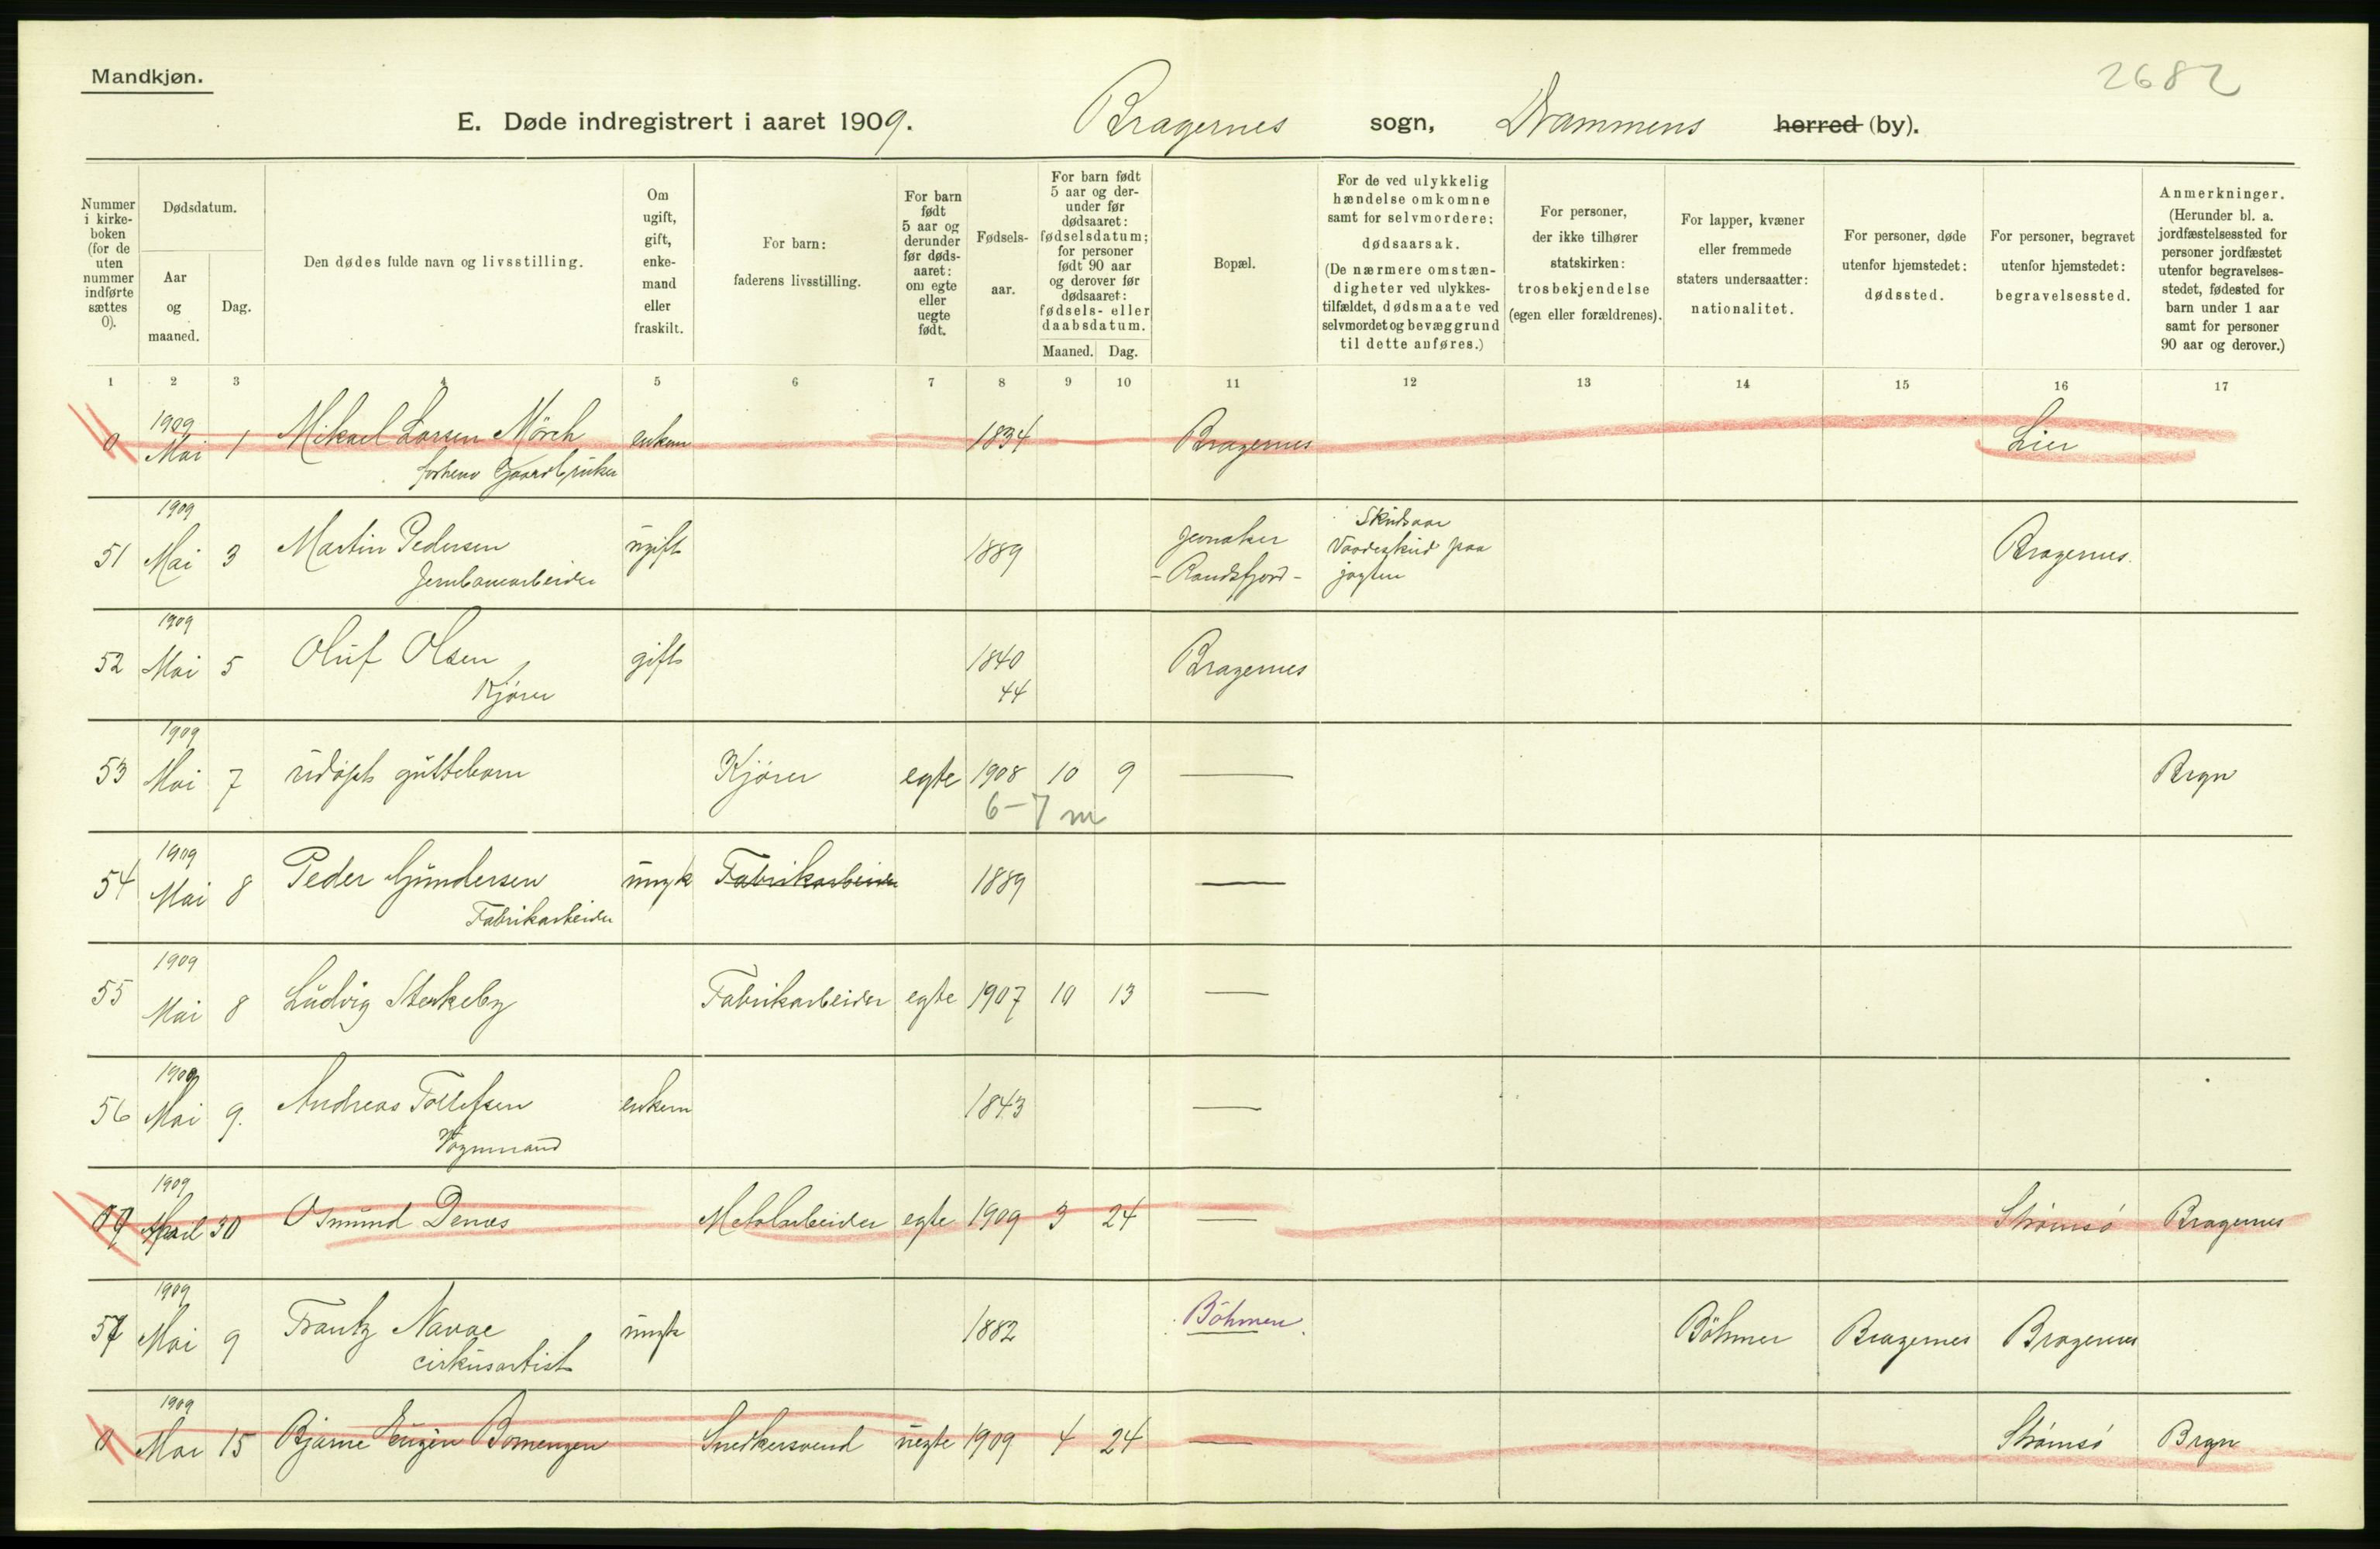 Mandkjøn.
2682
E. Døde indregistrert i aaret 1909. Bragernes sogn, Drammens herred (by).
Nummer i kirkeboken (for de uten nummer indførte sættes 0).
Dødsdatum.
Aar og maaned.
Dag.
Den dødes fulde navn og livsstilling.
Om ugift, gift, enkemand eller fraskilt.
For barn: faderens livsstilling.
For barn født 5 aar og derunder før dødsaaret: om egte eller uegte født.
Fødselsaar.
For barn født 5 aar og derunder før dødsaaret: fødselsdatum; for personer født 90 aar og derover før dødsaaret: fødsels- eller daabsdatum.
Maaned. Dag.
Bopæl.
For de ved ulykkelig hændelse omkomne samt for selvmordere: dødsaarsak. (De nærmere omstændigheter ved ulykkestilfældet, dødsmaate ved selvmordet og bevæggrund til dette anføres.)
For personer, der ikke tilhører statskirken: trosbekjendelse (egen eller forældrenes).
For lapper, kvæner eller fremmede staters undersaatter: nationalitet.
For personer, døde utenfor hjemstedet: dødssted.
For personer, begravet utenfor hjemstedet: begravelsessted.
Anmerkninger. (Herunder bl. a. jordfæstelsessted for personer jordfæstet utenfor begravelsesstedet, fødested for barn under 1 aar samt for personer 90 aar og derover.)
1 2 3 4 5 6 7 8 9 10 11 12 13 14 15 16 17
1909
0 Mai 1 Mikael Larsen Mörch enkem 1834 Bragernes Lier
forhenv Gaardbruker
1909
51 Mai 3 Martin Pedersen ugift 1889 Jevnaker Skudsaar Vaadeskud paa Bragernes.
Jernbanearbeider - Randsfjord - jagten
1909
52 Mai 5 Oluf Olsen gift 1840 Bragernes
Kjører 44
1909
53 Mai 7 udøpt guttebarn Kjører egte 1908 10 9 — Brgn
6-7 m
1909
54 Mai 8 Peder Gundersen ungk Fabrikarbeider 1889 —
Fabrikarbeider
1909
55 Mai 8 Ludvig Sterkeby Fabrikarbeider egte 1907 10 13 —
1909
56 Mai 9. Andreas Tollefsen enkem 1843 —
Vognmand
1909
April 30 Osmund Denæs Metalarbeider egte 1909 3 24 — Strømsø Bragernes
1909
57 Mai 9 Frantz Navae ungk 1882 Böhmen Böhmer Bragernes Bragernes
cirkusartist
1909
0 Mai 15 Bjarne Eugèn Bomengen Snedkersvend uegte 1909 4 24 — Strømsø Brgn